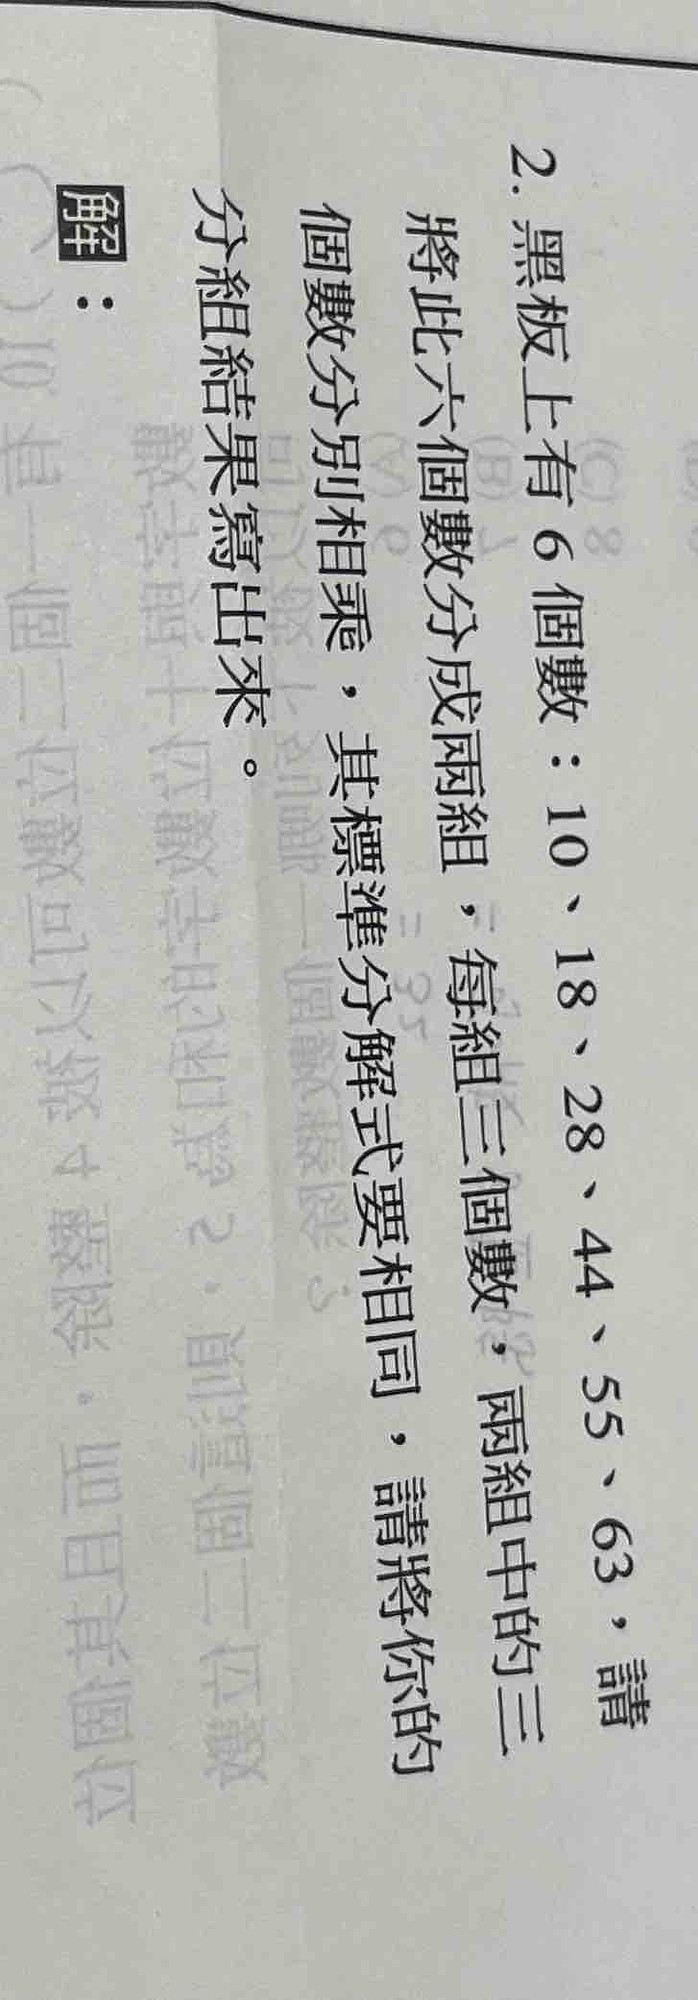 2. 黑板上有 6 個數：10、18、28、44、55、63，請
將此六個數分成兩組，每組三個數，兩組中的三
個數分別相乘，其標準分解式要相同，請將你的
分組結果寫出來。
解：